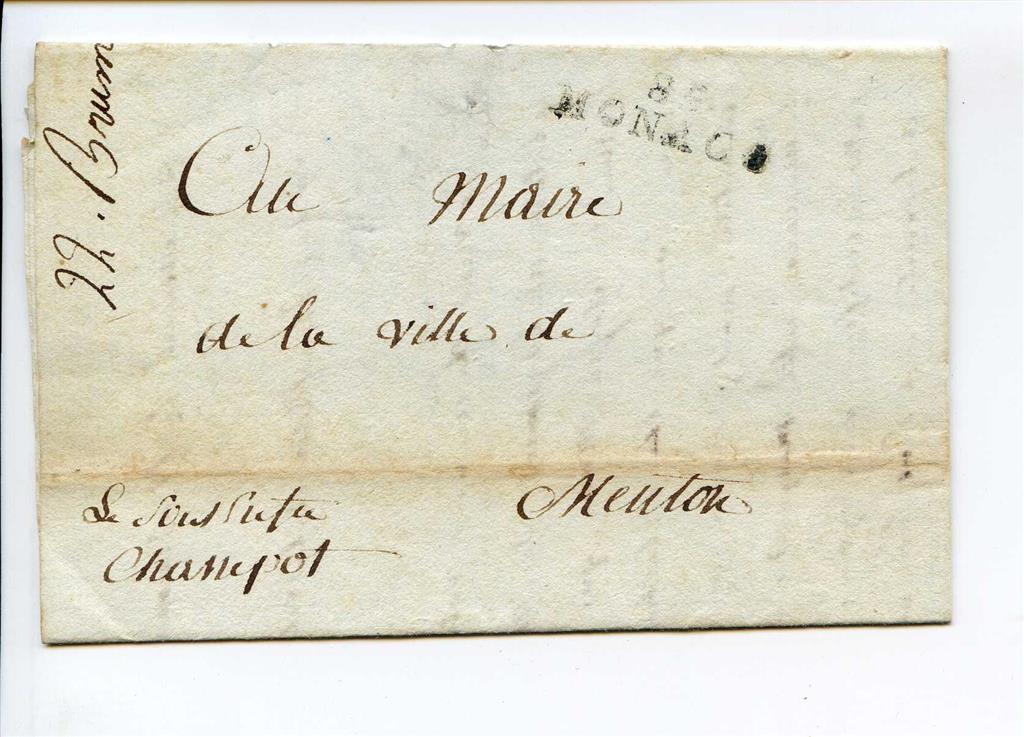 22. Brum
85
MONACO
Au Maire
de la ville de
Menton
Le Sous Prefet
Chassepot